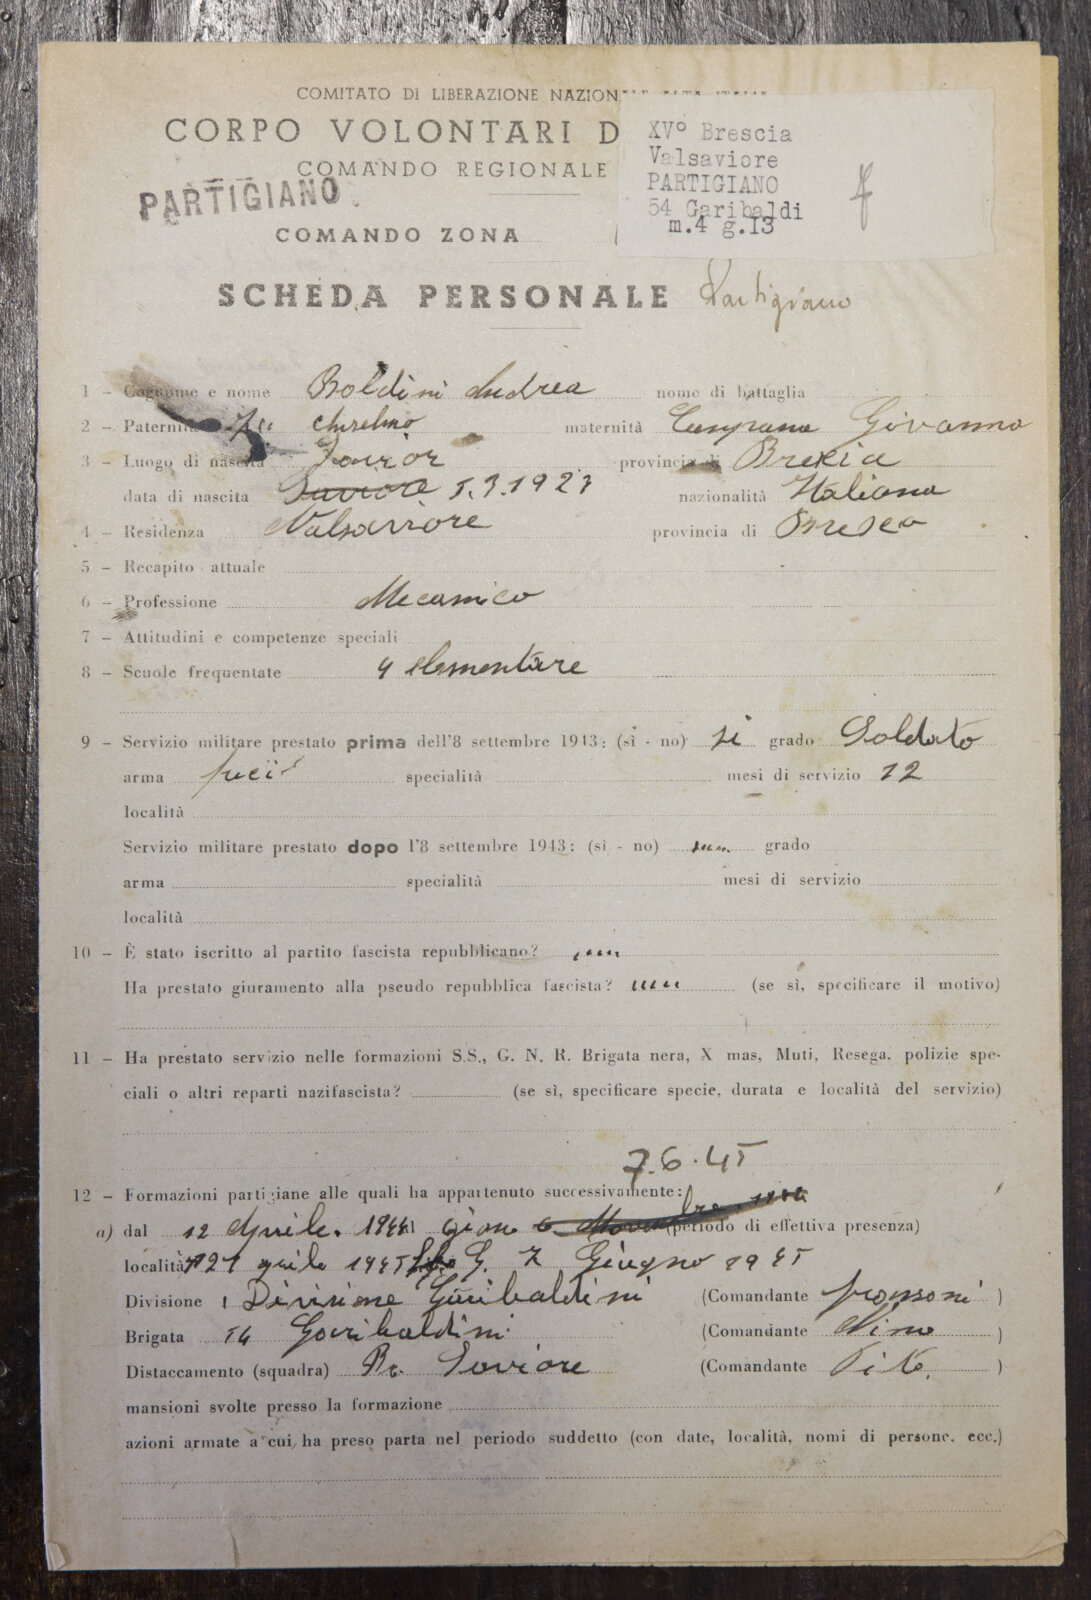 COMITATO DI LIBERAZIONE NAZIONALE ALTA ITALIA
CORPO VOLONTARI D
COMANDO REGIONALE
XV° Brescia
Valsaviore
PARTIGIANO
54 Garibaldi
m.4 g.13
PARTIGIANO
COMANDO ZONA
SCHEDA PERSONALE Partigiano
1 – Cognome e nome Boldini Andrea nome di battaglia
2 – Paternità fu Anselmo maternità Giovanna
3 – Luogo di nascita Savior provincia di Brescia
data di nascita Saviore 5.3.1923 nazionalità Italiana
4 – Residenza Valsaviore provincia di Brescia
5 – Recapito attuale
6 – Professione Mecanico
7 – Attitudini e competenze speciali
8 – Scuole frequentate 4 elementare
9 – Servizio militare prestato prima dell'8 settembre 1943: (sì - no) si grado Soldato
arma specialità mesi di servizio 12
località
Servizio militare prestato dopo l'8 settembre 1943: (sì - no) grado
arma specialità mesi di servizio
località
10 – È stato iscritto al partito fascista repubblicano?
Ha prestato giuramento alla pseudo repubblica fascista? (se sì, specificare il motivo)
11 – Ha prestato servizio nelle formazioni S.S., G. N. R. Brigata nera, X mas, Muti, Resega, polizie spe-
ciali o altri reparti nazifascista? (se sì, specificare specie, durata e località del servizio)
7.6.45
12 – Formazioni partigiane alle quali ha appartenuto successivamente:
a) dal 12 Aprile 1944 al (periodo di effettiva presenza)
località aprile 1945 G. 7 Giugno 1945
Divisione 1 Divisione Garibaldini (Comandante )
Brigata 54 Garibaldini (Comandante Nino )
Distaccamento (squadra) Saviore (Comandante )
mansioni svolte presso la formazione
azioni armate a cui ha preso parta nel periodo suddetto (con date, località, nomi di persone, ecc.)